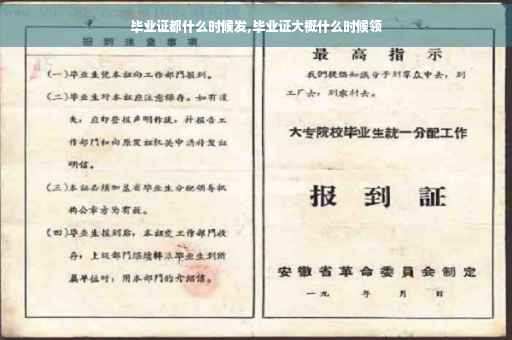 毕业证都什么时候发,毕业证大概什么时候领
报到注意事项
(一)毕业生凭本证向工作部门报到。
(二)毕业生对本证应注意保存。如有遗
失,应即登报声明作废,并报告工
作部门和向原发证机关申请补发证
明信。
(三)本证必须加盖省毕业生分配领导机
构公章方为有效。
(四)毕业生报到后,本证交工作部门收
存;上级部门继续转派毕业生到所
属单位时,用本部门的介绍信。
最高指示
我们提倡知识分子到群众中去,到
工厂去,到农村去。
大专院校毕业生统一分配工作
报到证
安徽省革命委员会制定
一九 年 月 日